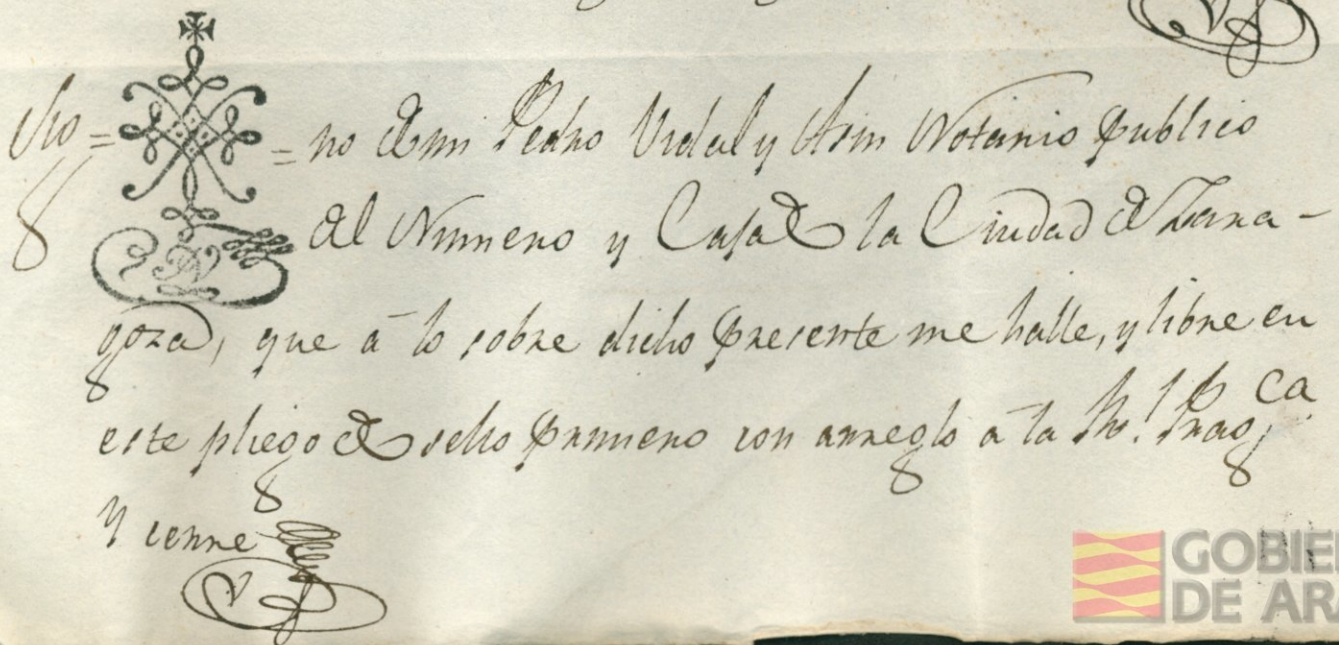 Sig = = no de mi Pedro Vidal y Asin Notario publico
del Numero y Casa de la Ciudad de Zara-
goza, que à lo sobre dicho presente me halle, y libre en
este pliego de sello primero con arreglo à la Rl. Pragca
y cerre
GOBIE
DE ARA